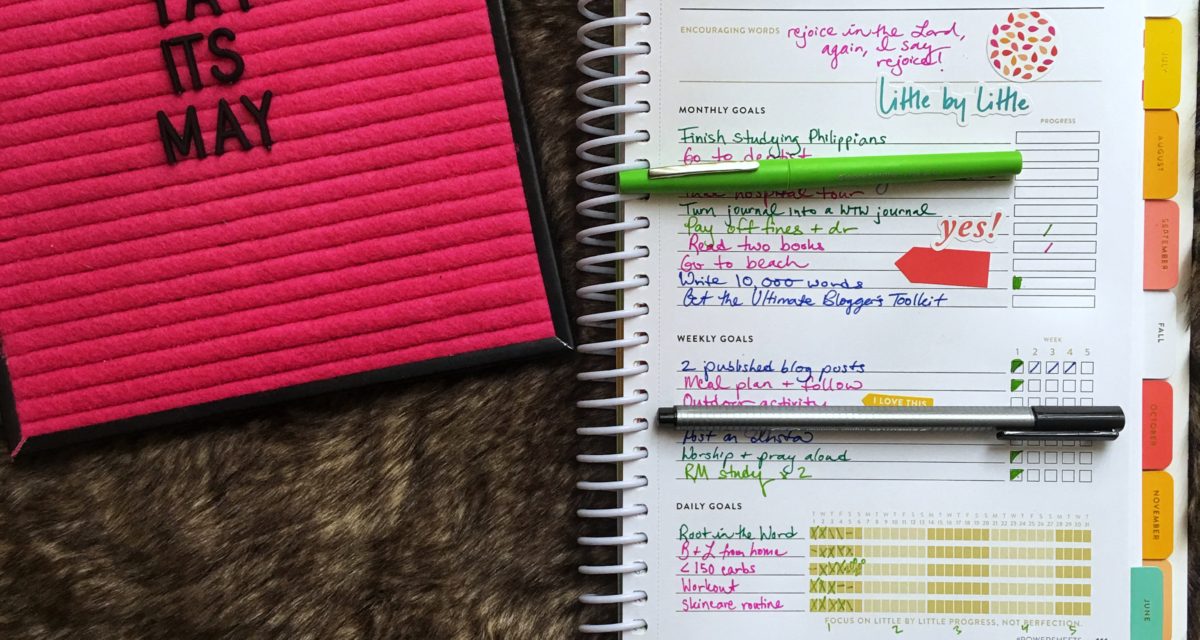 YAY
ITS
MAY
ENCOURAGING WORDS
rejoice in the Lord,
again, I say
rejoice!
little by little
MONTHLY GOALS
PROGRESS
Finish studying Philippians
Go to dentist
Take hospital tour
Turn journal into a WTW journal
Pay off fines + dr
yes!
Read two books
Go to beach
Write 10,000 words
Get the Ultimate Blogger's Toolkit
WEEKLY GOALS
WEEK
1 2 3 4 5
2 published blog posts
Meal plan + follow
Outdoor activity
I LOVE THIS
Post on Insta
Worship + pray aloud
RM study x 2
DAILY GOALS
Root in the Word
B + L from home
<150 carbs
Workout
Skincare routine
FOCUS ON LITTLE BY LITTLE PROGRESS, NOT PERFECTION.
1 2 3 4 5
#POWERSHEETS
JULY
AUGUST
SEPTEMBER
FALL
OCTOBER
NOVEMBER
JUNE